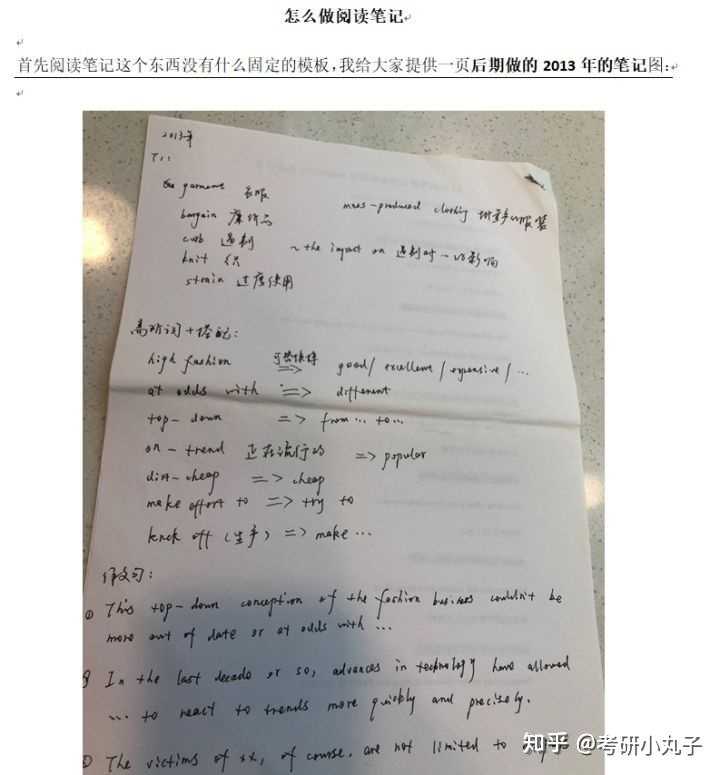 怎么做阅读笔记
首先阅读笔记这个东西没有什么固定的模板，我给大家提供一页后期做的 2013 年的笔记图:
2013年
T1:
garment 衣服
mass-produced clothing 批量生产的服装
bargain 廉价品
curb 遏制 ~ the impact on 遏制对…的影响
knit 织
strain 过度使用
高阶词+搭配:
high fashion 可替换择 => good / excellent / expensive / …
at odds with => different
top-down => from … to …
on-trend 正在流行的 => popular
dirt-cheap => cheap
make effort to => try to
knock off (生产) => make …
作文句:
① This top-down conception of the fashion business couldn't be
more out of date or at odds with …
In the last decade or so, advances in technology have allowed
… to react to trends more quickly and precisely.
The victims of xx, of course, are not limited to
知乎 @考研小丸子